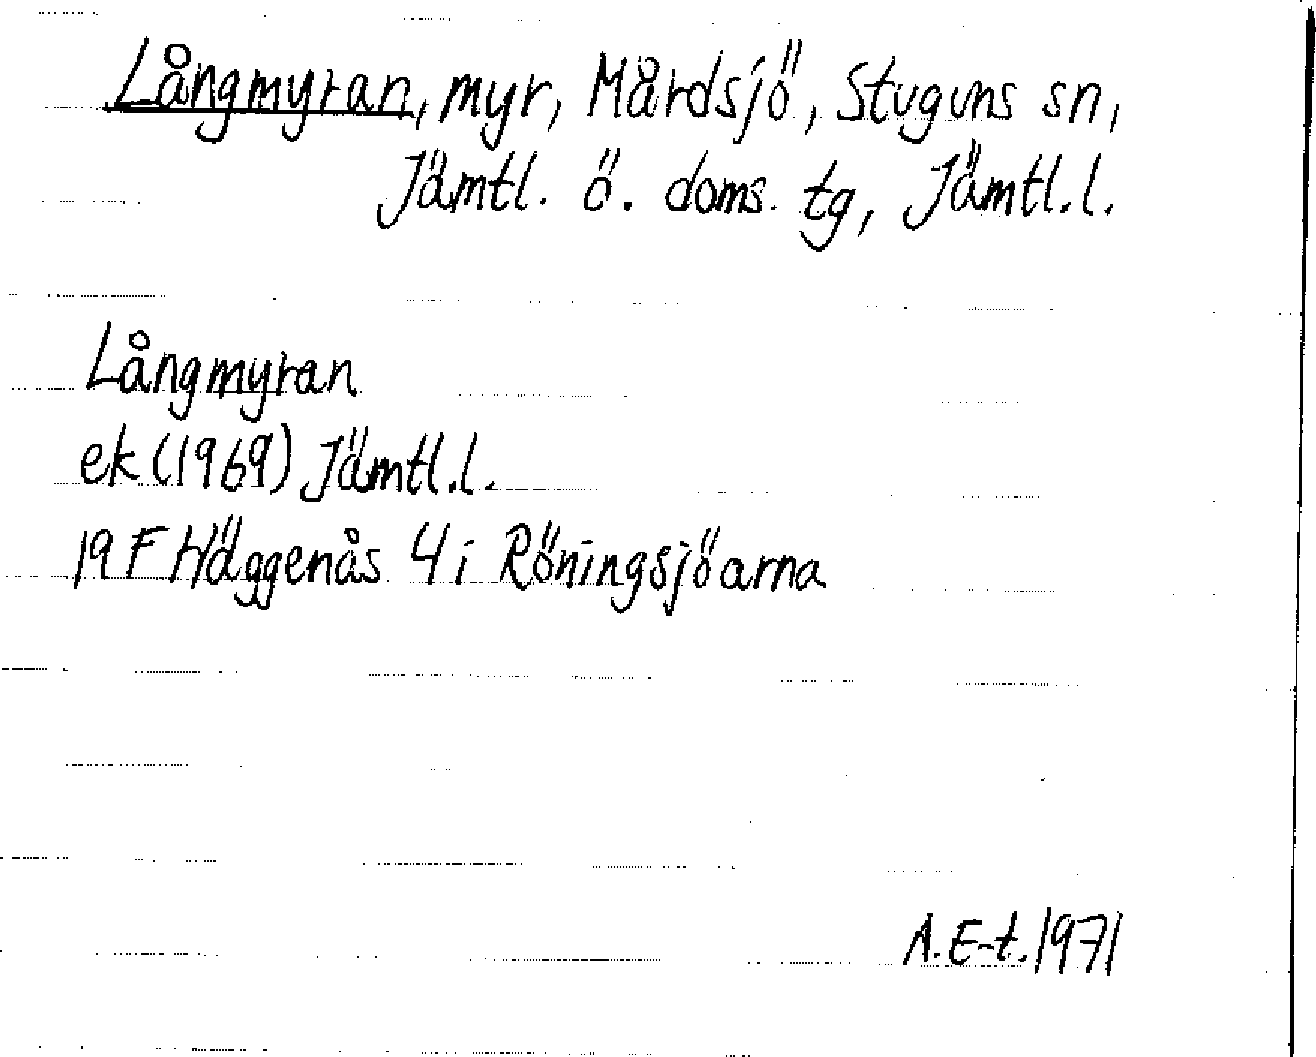 Långmyran, myr, Mårdsjö, Stuguns sn,
Jämtl. ö. doms. tg, Jämtl.l.
Långmyran
ek (1969) Jämtl.l.
19 F Häggenås 4 i Röningsjöarna
A. E-t. 1971